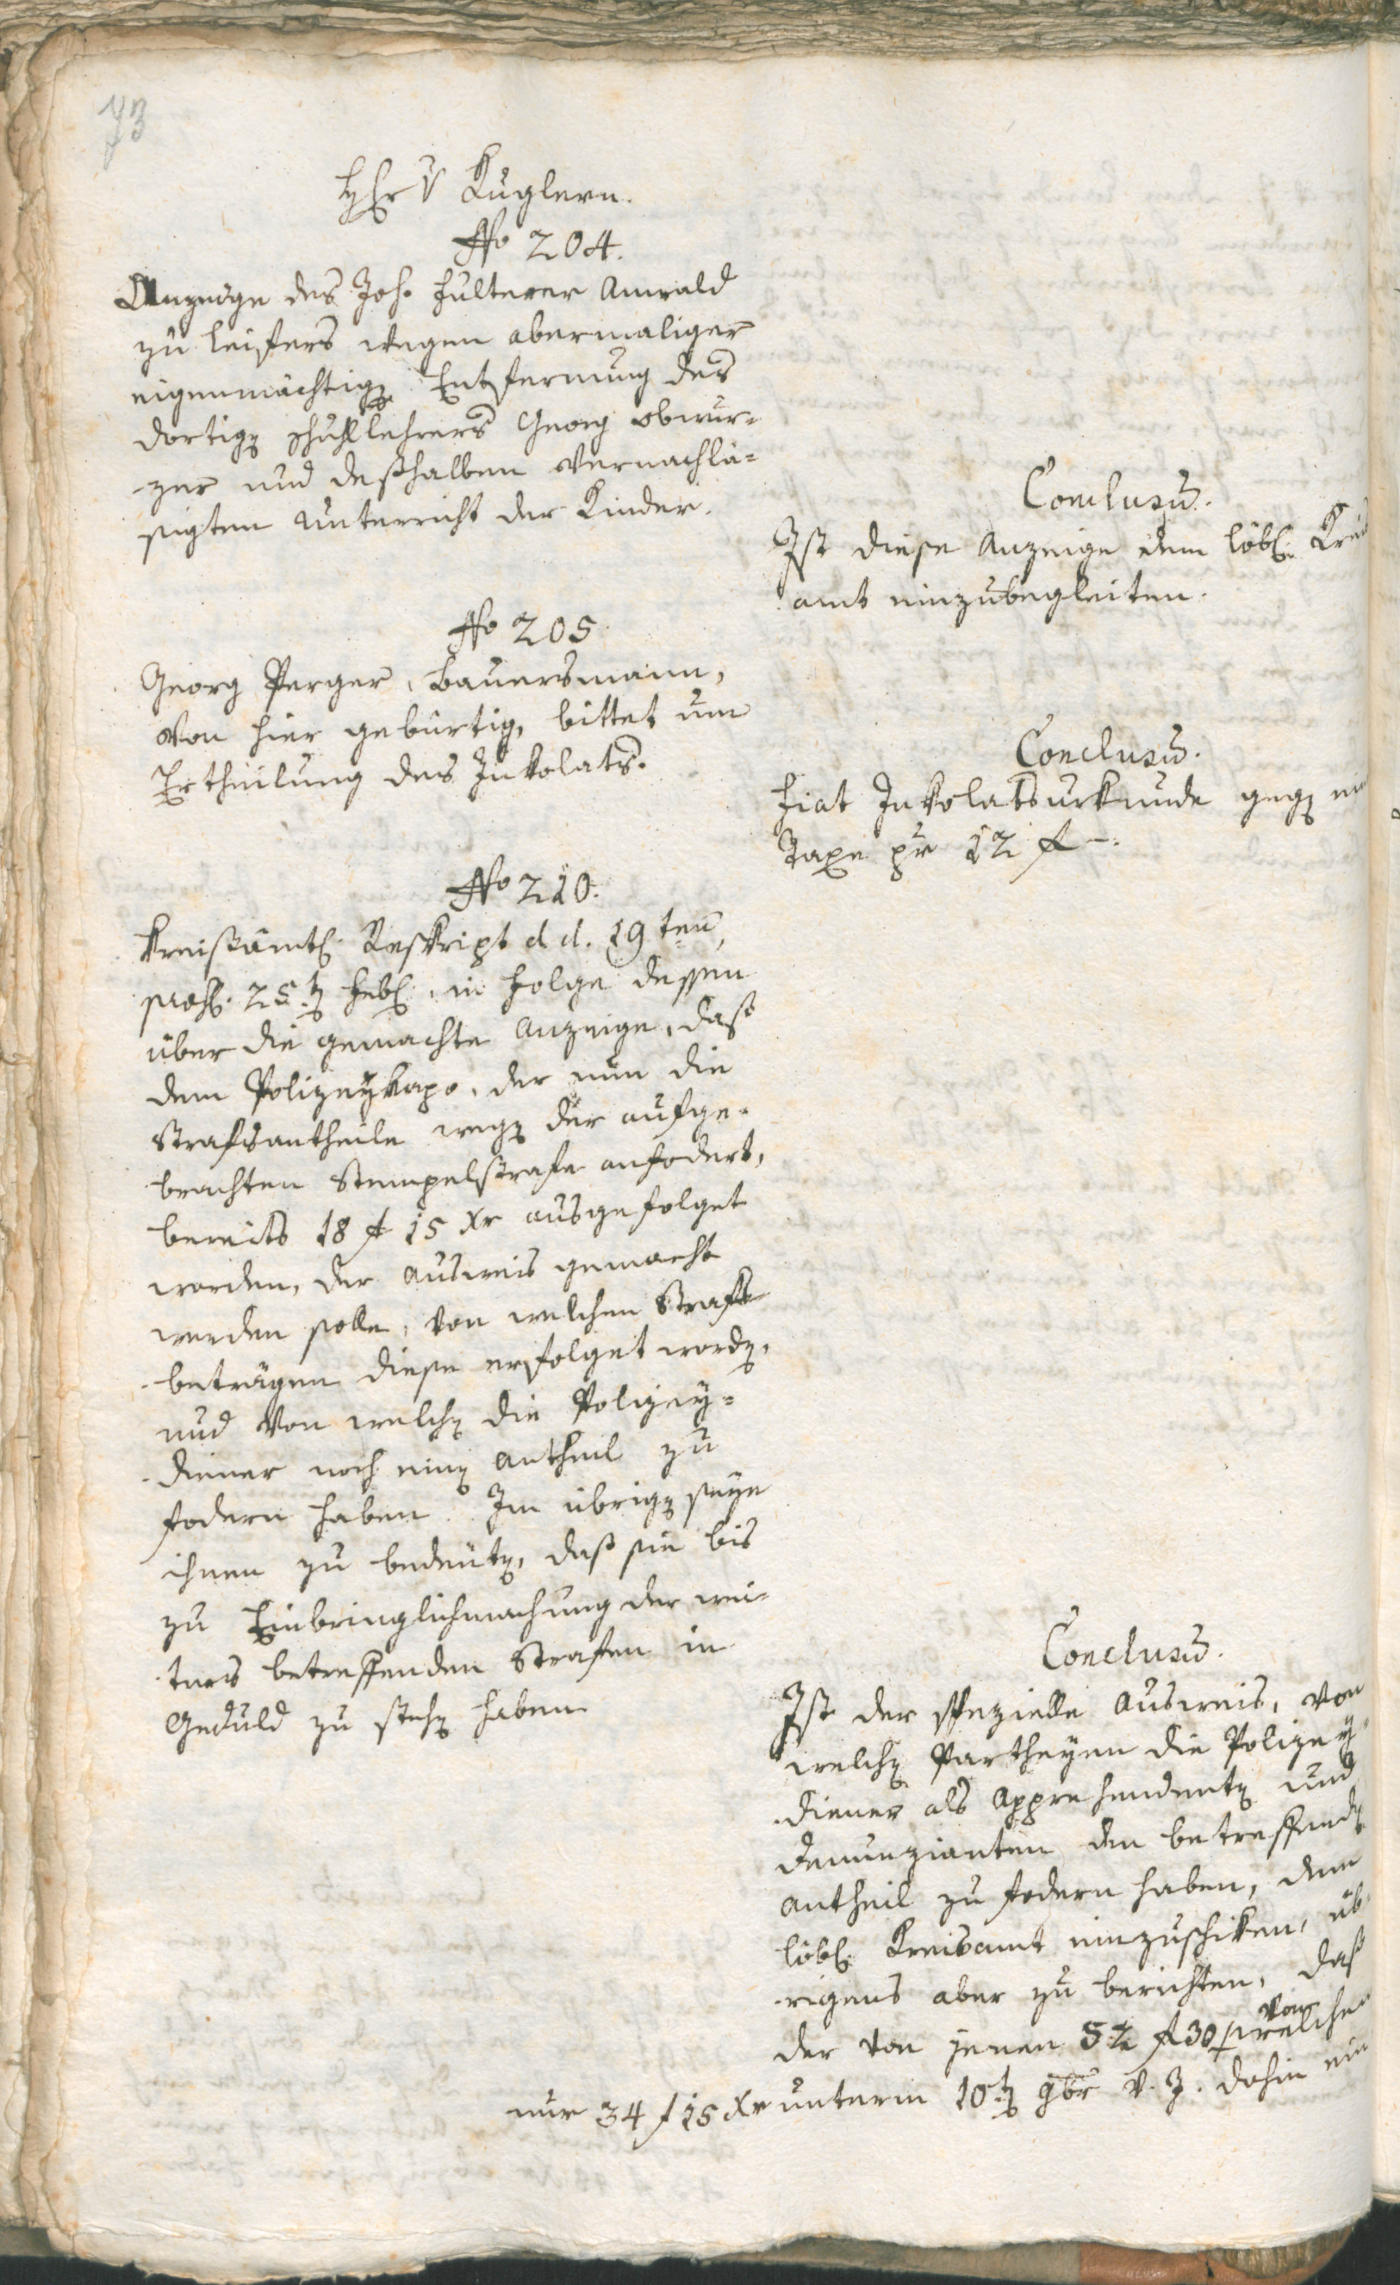 73
HEr v Kuglern.
No 204.
Anzeige des Joh. Fulterer Anwald
zu Leifers wegen abermaliger
eigenmächtigen Entfernung des
dortigen Schullehrers Georg Obwur-
zer und deßhalben vernachlä-
sigten Unterricht der Kinder.
Conclusum.
Ist diese Anzeige dem löbl. Kreis
amt einzubegleiten.
No 205
Georg Perger, Bauersmann,
von hier gebürtig, bittet um
Ertheilung des Inkolats.
Conclusum.
Fiat Inkolatsurkunde gegen ein
Taxe pr 12 f –.
No 210.
Kreisämtl. Reskript d. d. 19ten,
präs. 25ten Febl. in Folge dessen
über die gemachte Anzeige, dass
dem Polizeykapo, der nun die
Strafsantheile wegen der aufge-
brachten Stempelstrafe anfodert,
bereits 18 f 15 Xr ausgefolget
worden, der Ausweis gemacht
werden solle, von welchen Straf-
beträgen diese erfolget worden,
und von welchen die Polizey-
diener noch einen Antheil zu
fodern haben. Im übrigen seye
ihnen zu bedeuten, daß sie bis
zu Einbringlichmachung der wei-
ters betreffenden Strafen in
Geduld zu stehen haben
Conclusum.
Ist der spezielle Ausweis, von
welchen Partheyen die Polizey-
diener als Apprehendenten und
Denunzianten den betreffenden
Antheil zu fodern haben, dem
löbl. Kreisamt einzuschiken, üb-
rigens aber zu berichten, daß
der von jenen 52 f 30 von welchen
nur 34 f 15 Xr unterm 10ten 9br v. J. dahin ein